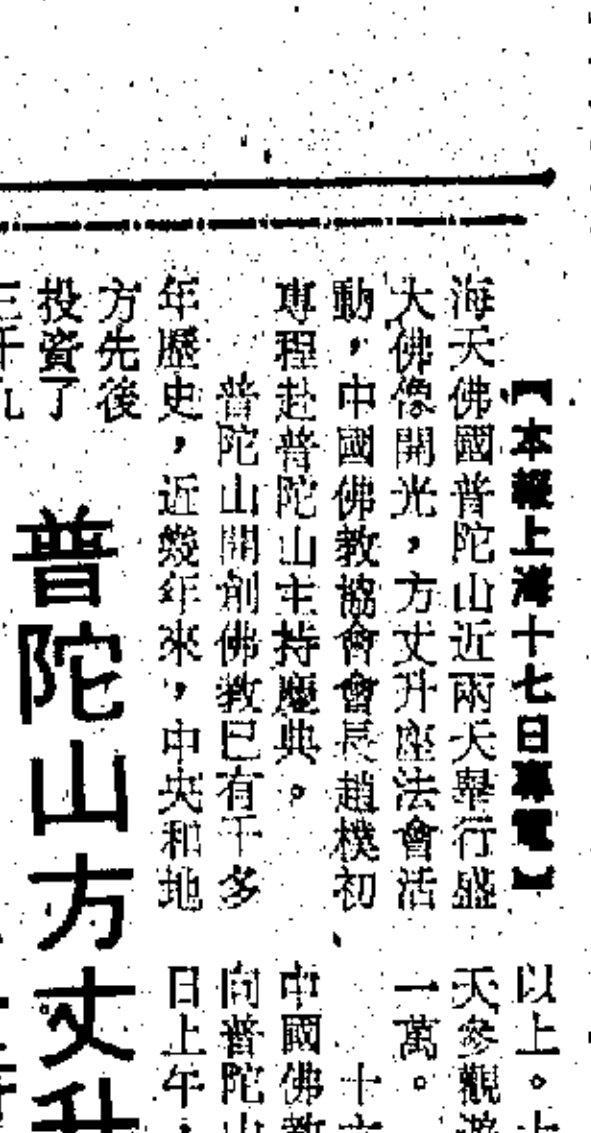 【本報上海十七日專電】
海天佛國普陀山近兩天舉行盛
大佛像開光，方丈升座法會活
動，中國佛教協會會長趙樸初
專程赴普陀山主持慶典。
普陀山開創佛教已有千多
年歷史，近幾年來，中央和地
方先後
投資了
三千九
普陀山方丈升
以上。
天參觀游
一萬。
十六
中國佛教
向普陀山
日上午，